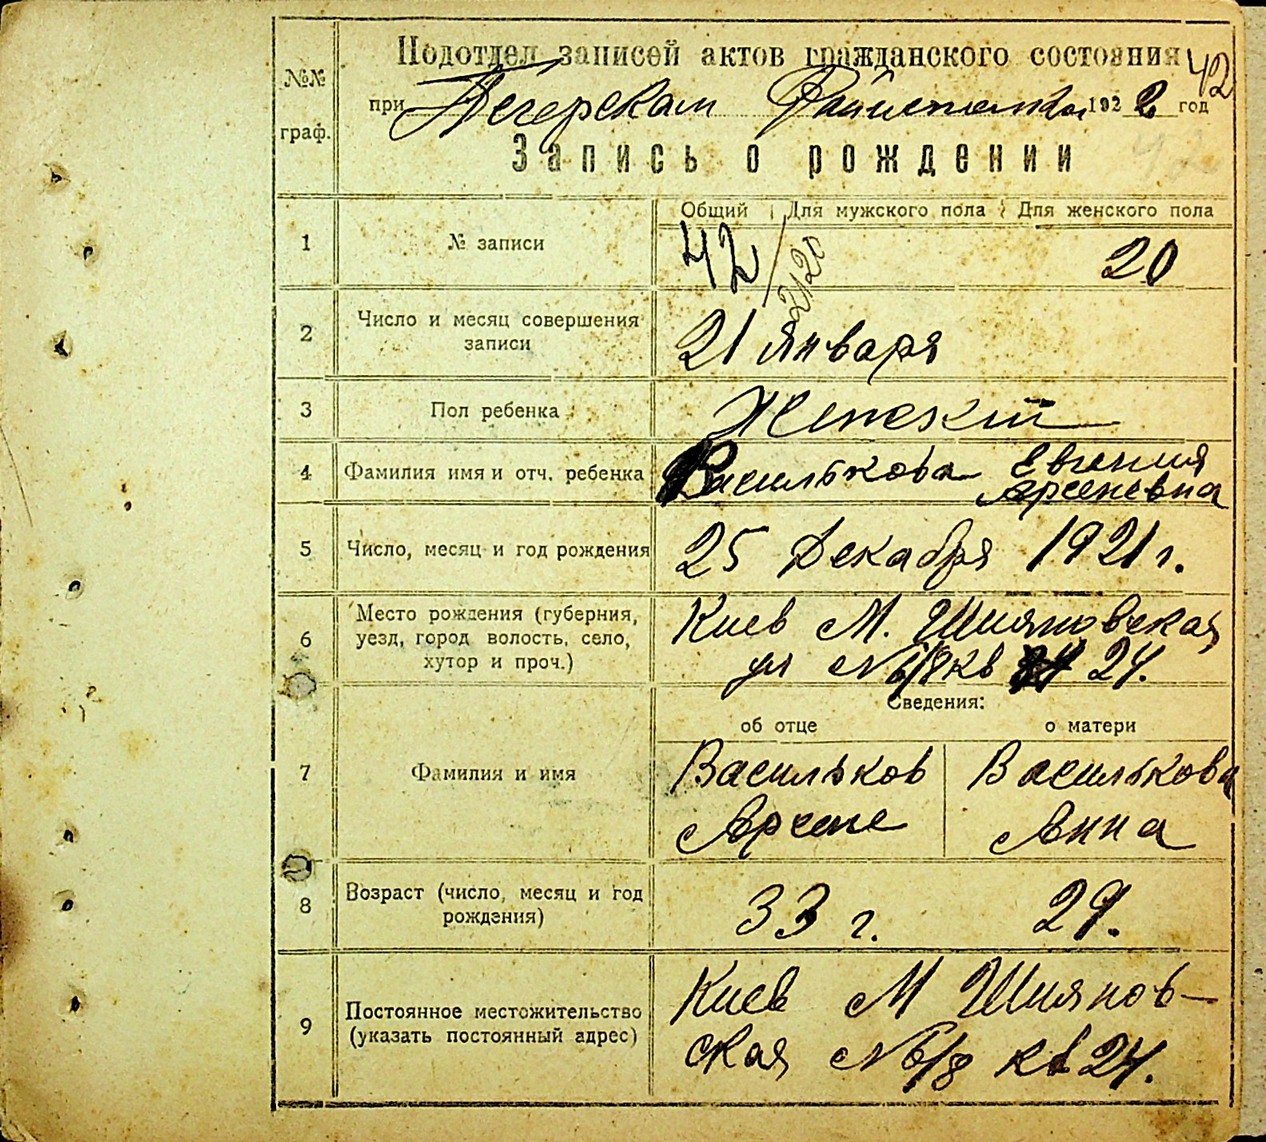 №№
граф.
Подотдел записей актов гражданского состояния 42
при Печерском Райисполко 1922 год
Запись о рождении
Общий Для мужского пола Для женского пола
1 № записи 42 20
2 Число и месяц совершения записи 21 января
3 Пол ребенка Женский
4 Фамилия имя и отч. ребенка Василькова Евгения
Арсеневна
5 Число, месяц и год рождения 25 Декабря 1921 г.
6 Место рождения (губерния, Киев М. Шияновская
уезд, город волость, село, ул № 6/8 кв 24.
хутор и проч.)
Сведения:
об отце о матери
7 Фамилия и имя Васильков Василькова
Арсение Анна
8 Возраст (число, месяц и год рождения) 33 г. 29.
9 Постоянное местожительство Киев М Шиянов-
(указать постоянный адрес) ская № 6/8 кв 24.